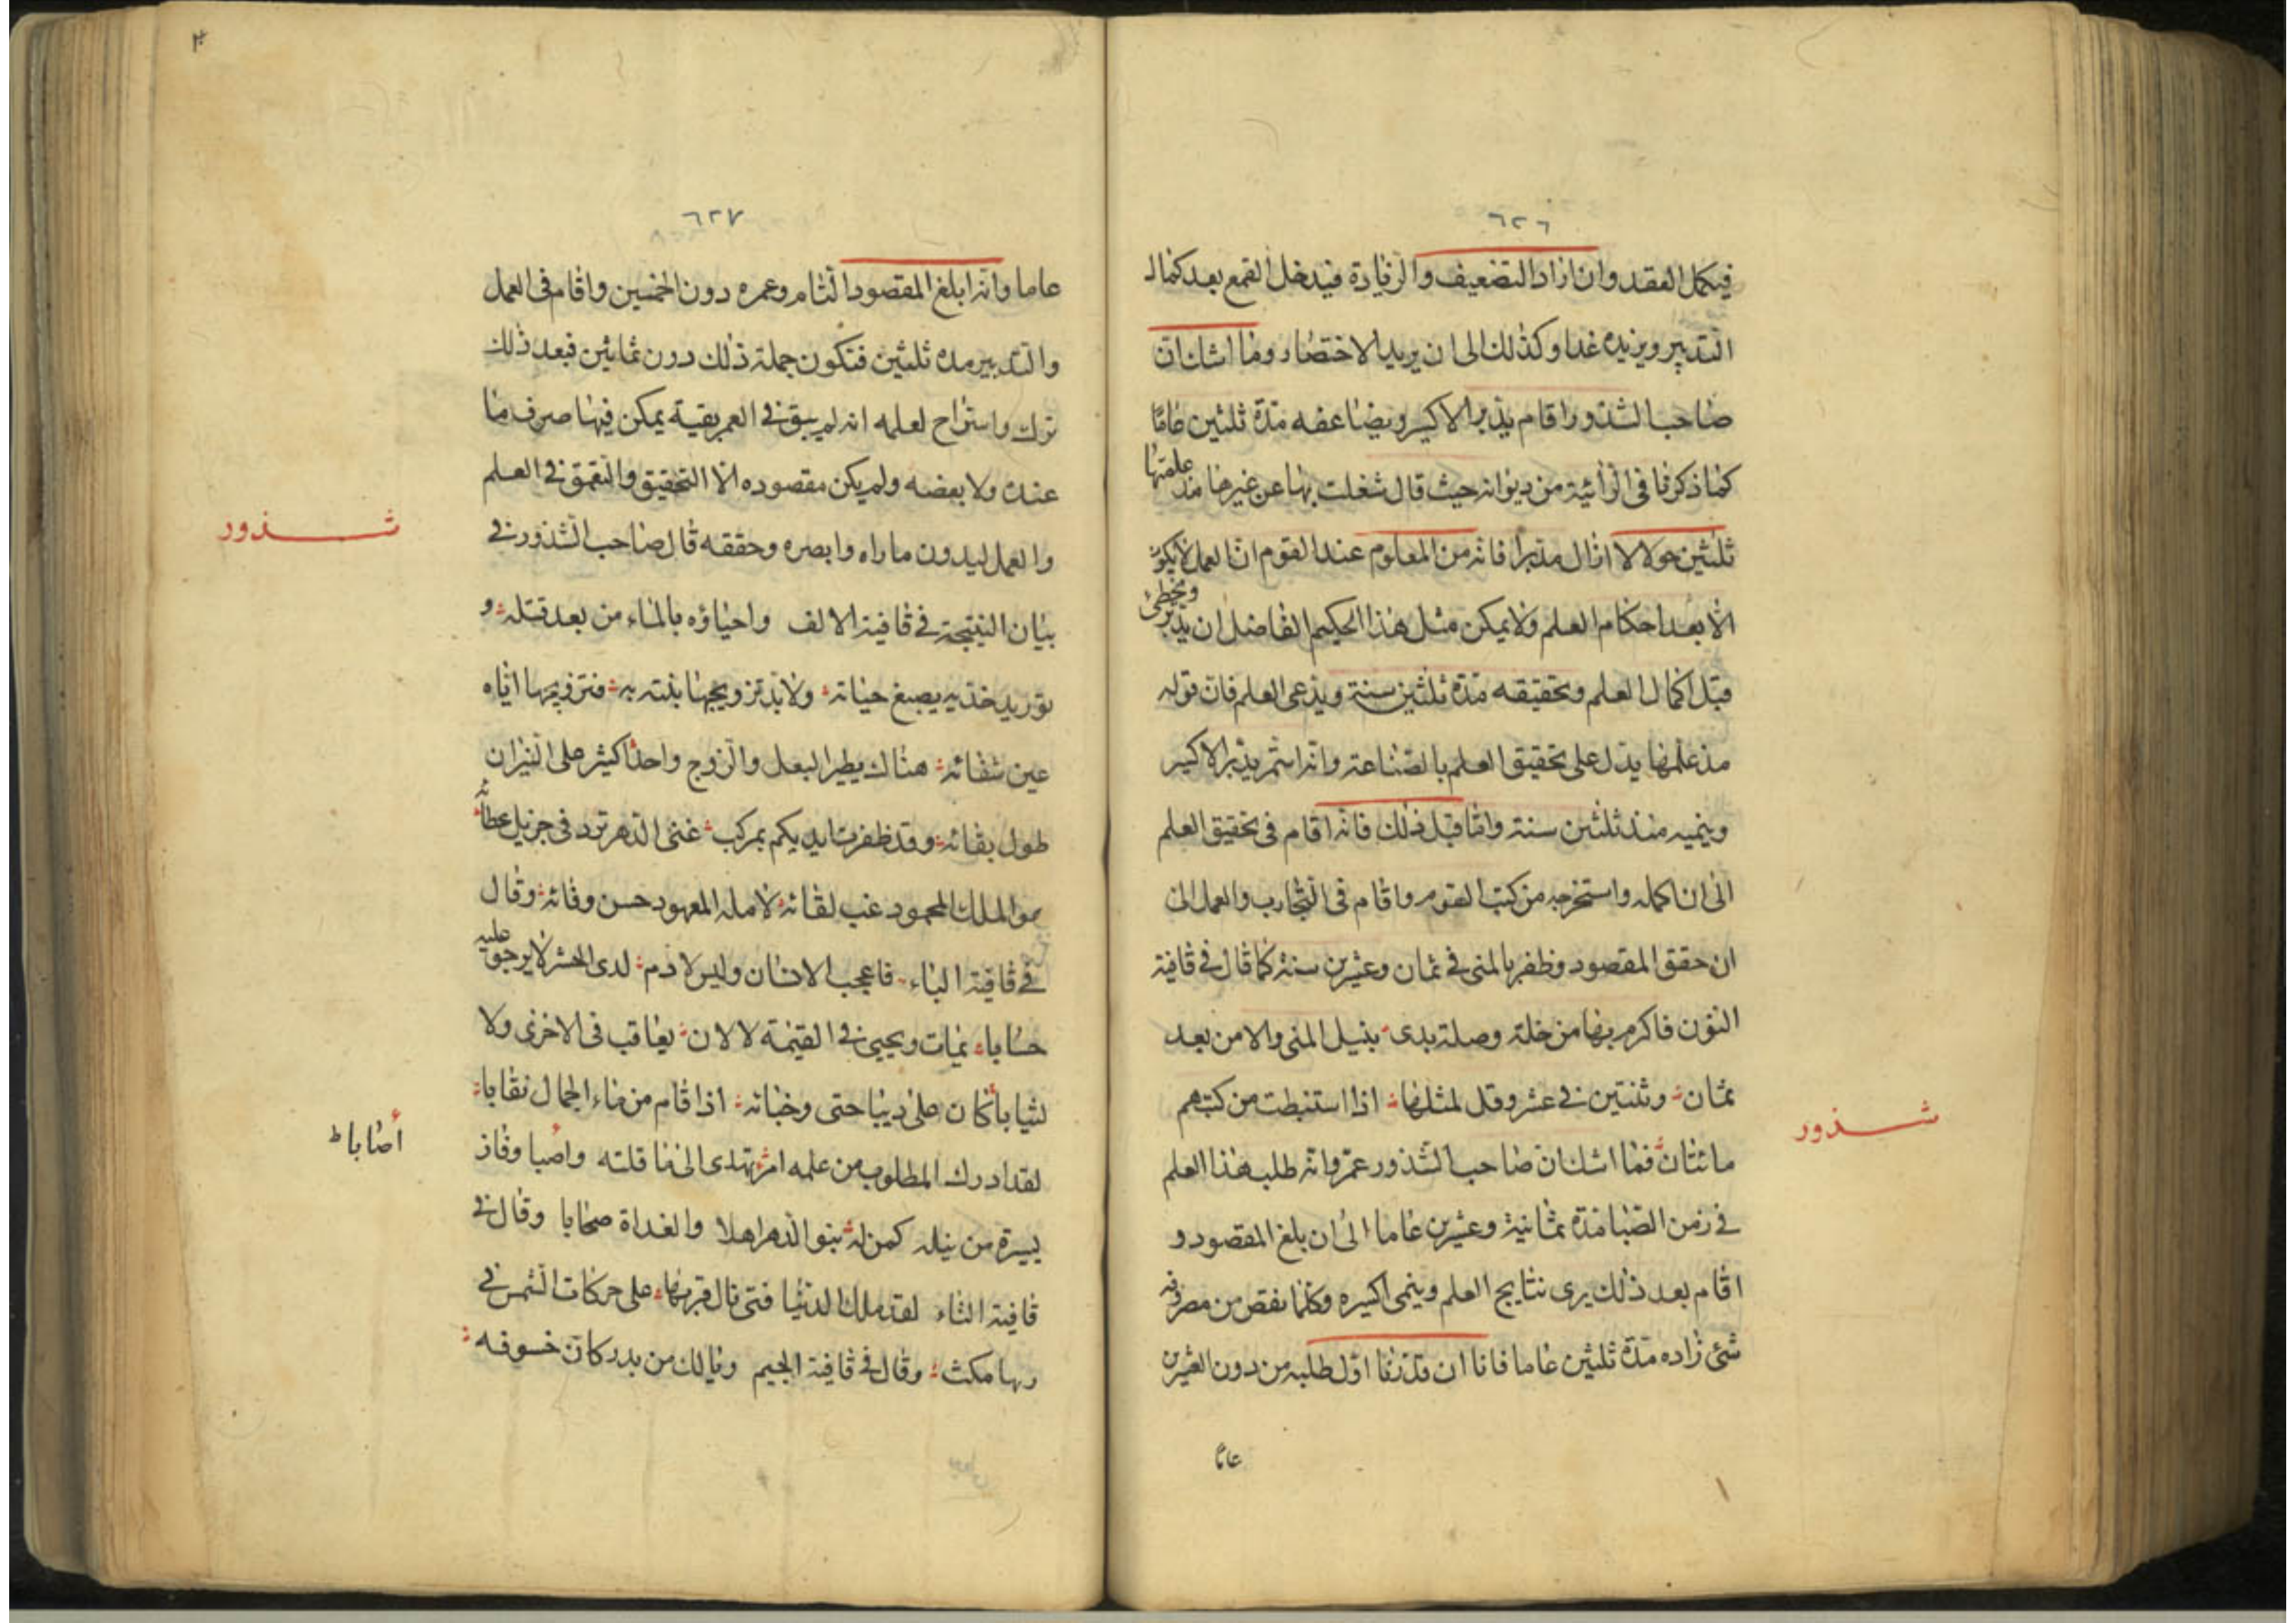 ٦٢٦
فيكمل العقد وان اراد التضعيف والزيادة فيدخل القمع بعد كمال
التدبير ويزيده غدا وكذلك الى ان يريد الاختصار وما اشك ان
صاحب الشذور اقام يدبر الاكسير ويضاعفه مدة ثلثين عاما
كما ذكر فى الرائية من ديوانه حيث قال شغلت بها عن غيرها مذ علمتها
ثلثين حولا لا ازال مدبرا فانه من المعلوم عند القوم ان العمل لا يكون
الا بعد احكام العلم ولا يمكن مثل هذا الحكيم الفاضل ان يدبر ويخطئ
قبل اكمال العلم وتحقيقه مدة ثلثين سنة ويدعى العلم فان قوله
مذ علمتها يدل على تحقيق العلم بالصناعة وانه استمر يدبر الاكسير
وينميه منذ ثلثين سنة واما قبل ذلك فانه اقام فى تحقيق العلم
الى ان اكمله واستخرجه من كتب القوم واقام فى التجارب والعمل الى
ان حقق المقصود وظفر بالمنى فى ثمان وعشرين سنة كما قال فى قافية
النون فاكرم بها من خلة وصلة بدى بنيل المنى والامن بعد
ثمان وثنتين فى عشر وقل لمثلها اذا استنبطت من كتبهم
مائتان فما اشك ان صاحب الشذور عمر وانه طلب هذا العلم
شذور
فى زمن الصبا مدة ثمانية وعشرين عاما الى ان بلغ المقصود و
اقام بعد ذلك يرى نتايج العلم وينمى اكسيره وكلما نقص من مصروفه
شئ زاده مدة ثلثين عاما فانا ان قدرنا اول طلبه من دون العشرين
عاما
٦٢٧
عاما وانه ابلغ المقصود التام وعمره دون الخمسين واقام فى العمل
والتدبير مدة ثلثين فتكون جملة ذلك دون ثمانين فبعد ذلك
ترك واستراح لعلمه انه لم يبق فى العمر بقية يمكن فيها صرف ما
عنده ولا بعضه ولم يكن مقصوده الا التحقيق والتعمق فى العلم
والعمل ليدون ما راه وابصره وحققه قال صاحب الشذور فى
شذور
بيان النتيجة فى قافية الالف واحياؤه بالماء من بعد قتله و
توريد خديه يصبغ حيائه ولا بد تزويجها بنته به فتزويجها اياه
عين شفائه هنالك يطير البعل والزوج واحدا كثير على النيران
طول بقائه وقد ظفرت ايديكم بمركب غنى الدهر ترد فى جزيل عطائه
هو الملك المحمود غب لقائه لامله المعهود حسن وفائه وقال
فى قافية الباء فاعجب الانسان وليس لادم لدى الحشر لا يرجو عليه
حسابا يمات ويحيى فى القيمة لا لان يعاقب فى الاخرى ولا
لثيابا كان على ديباجتى وخبائه اذا قام من ماء الجمال نقابا
لقد ادرك المطلوب من علمه امرؤ تهدى الى ما قلته واصبا وفاز
أصابا ط
بيسرة من نيله كمن له بنو الدهر اهلا والغداة صحابا وقال فى
قافية الثاء لقد ملك الدنيا فتى نال قربها على حركات الشمس فى
بها مكث وقال فى قافية الجيم ويالك من بدر كان خسوفه